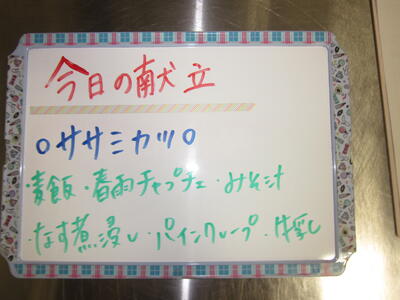 今日の献立
○ササミカツ○
・麦飯・春雨チャプチェ・みそ汁
・なす煮浸し・パインクレープ・牛乳